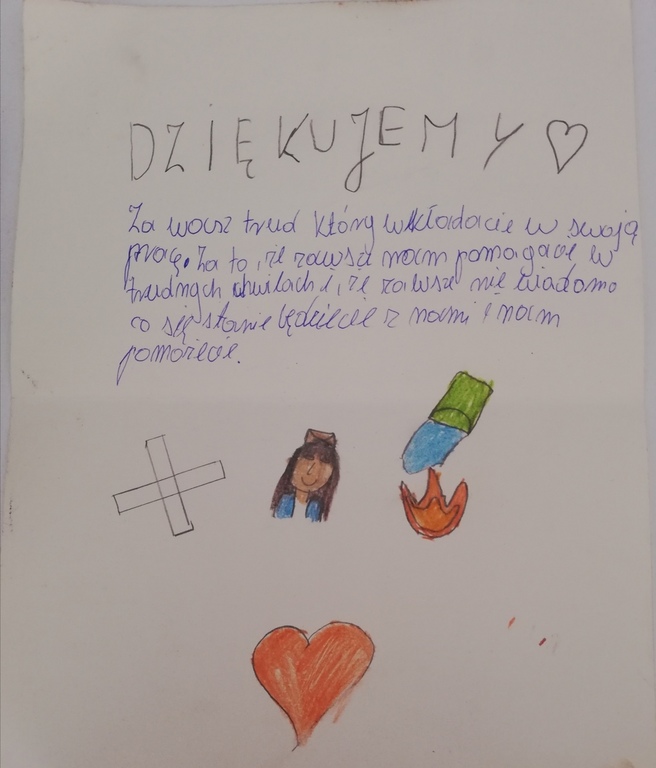 DZIĘKUJEMY
Za wasz trud który wkładacie w swoją
pracę. Za to, że zawsze nam pomagacie w
trudnych chwilach i, że zawsze nie wiadomo
co się stanie będziecie z nami i nam
pomożecie.